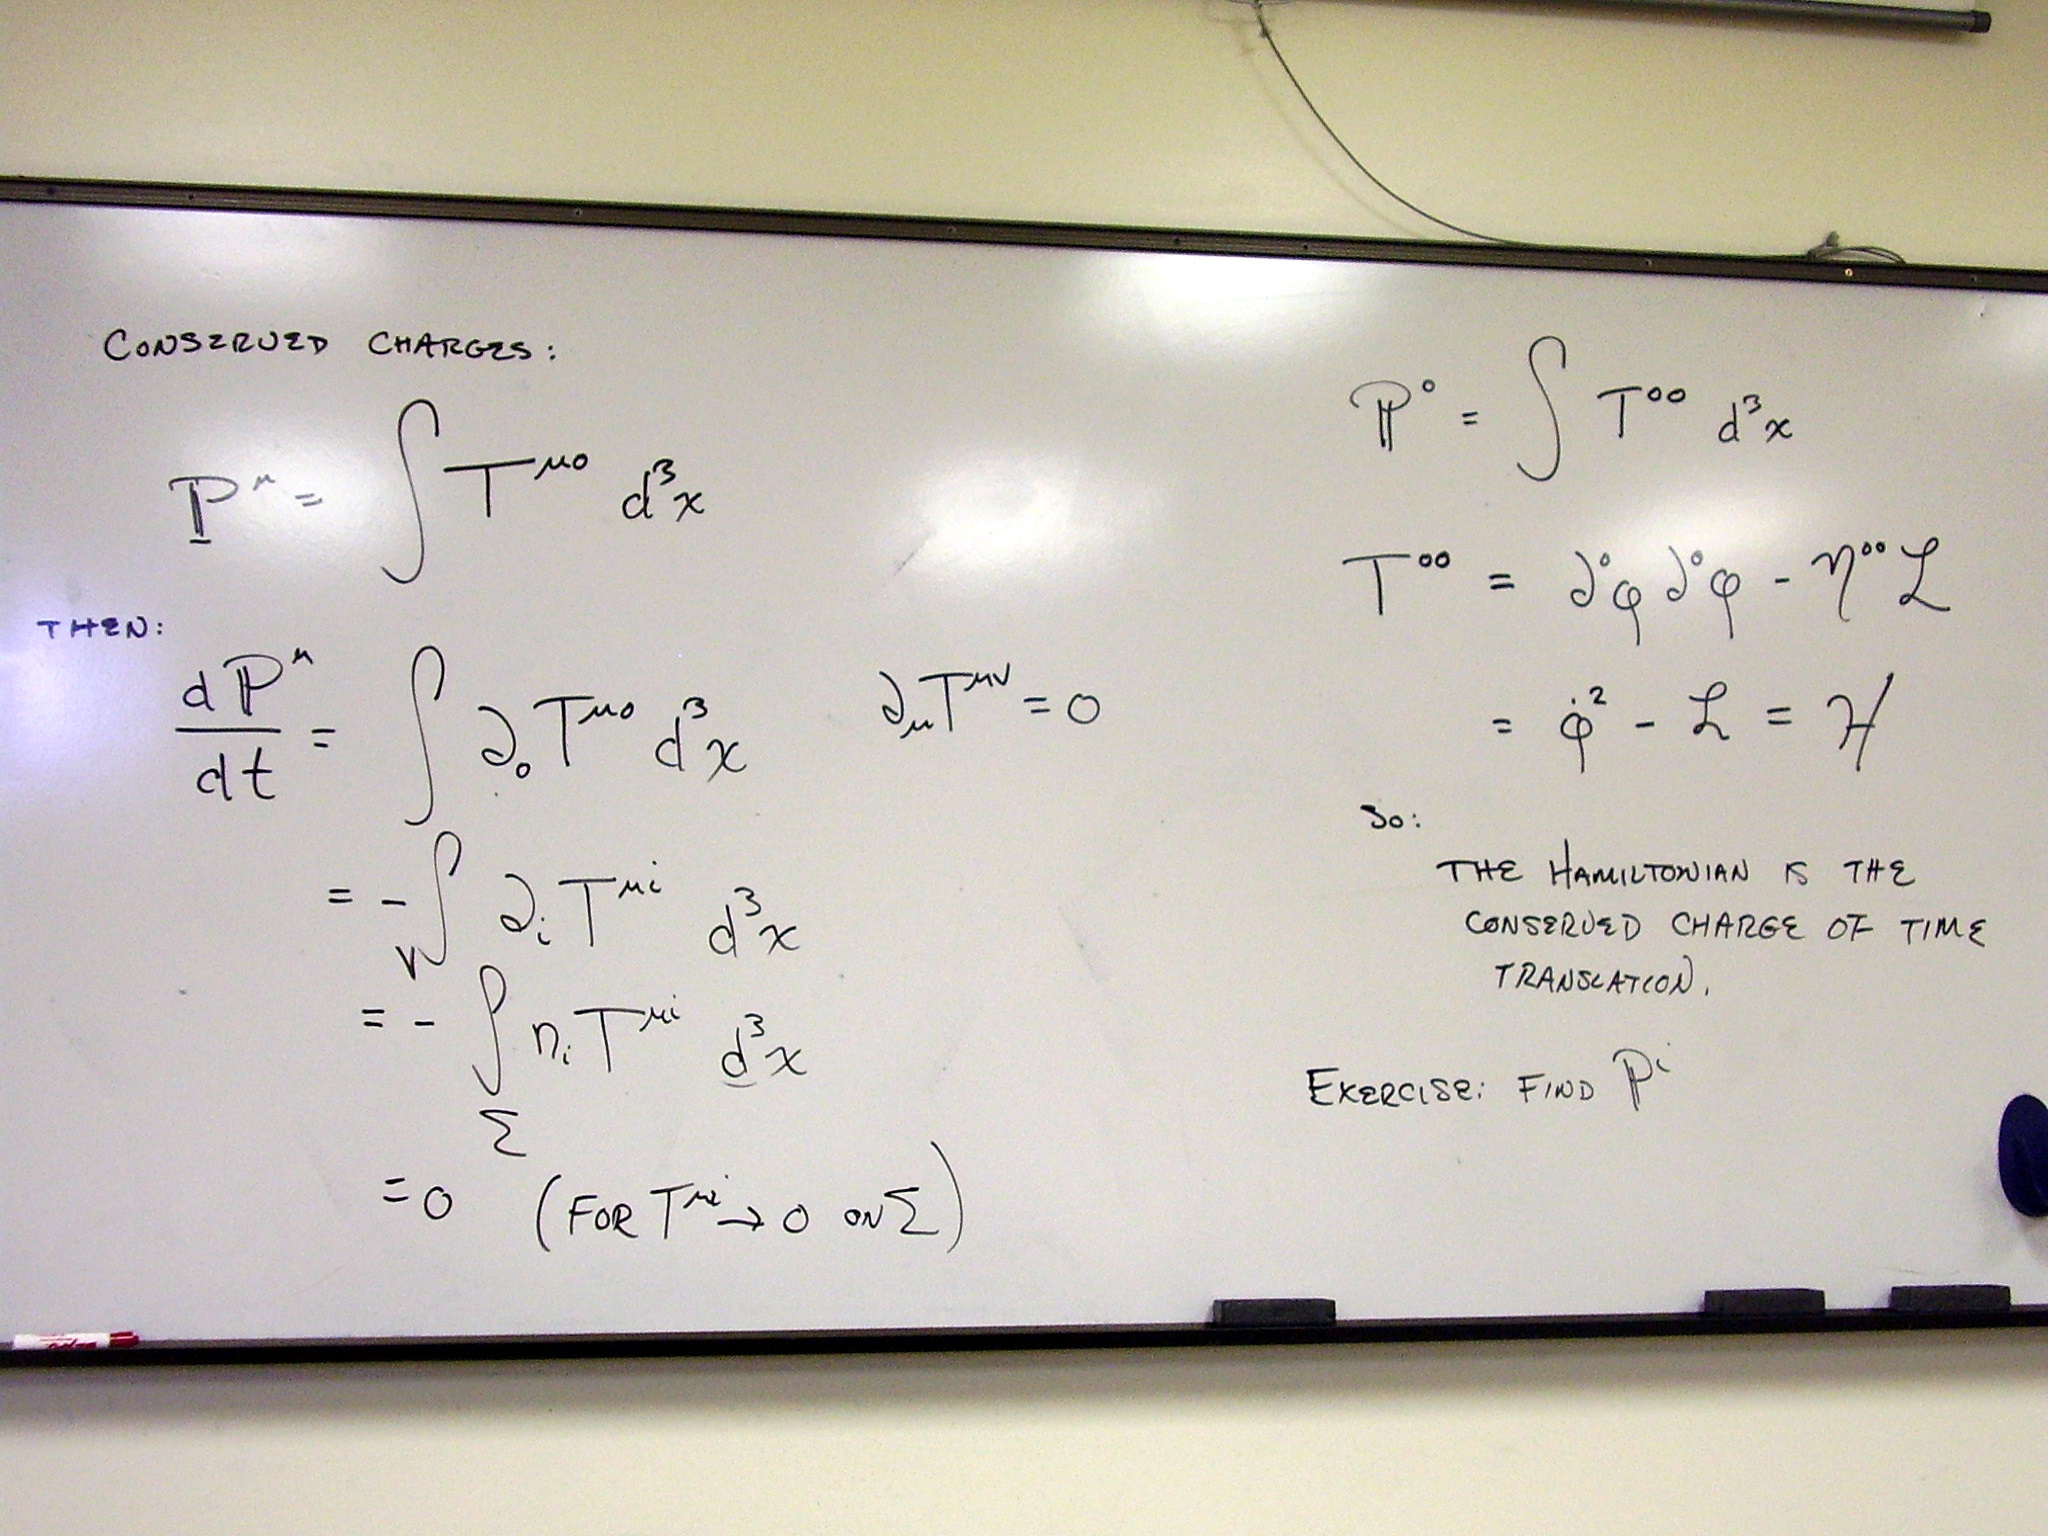 CONSERVED CHARGES:
P^μ = ∫ T^{μ0} d³x
THEN:
dP^μ/dt = ∫ ∂₀ T^{μ0} d³x    ∂_μ T^{μν} = 0
= - ∫_V ∂_i T^{μi} d³x
= - ∫_Σ n_i T^{μi} d³x
= 0 (FOR T^{μi} → 0 ON Σ)
P⁰ = ∫ T⁰⁰ d³x
T⁰⁰ = ∂⁰φ ∂⁰φ - η⁰⁰ ℒ
= φ̇² - ℒ = ℋ
SO:
THE HAMILTONIAN IS THE
CONSERVED CHARGE OF TIME
TRANSLATION.
EXERCISE: FIND P^i